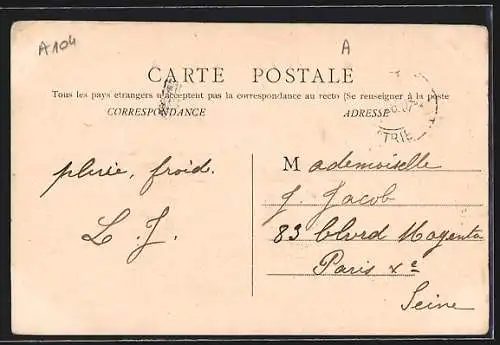 A104
A
CARTE POSTALE
Tous les pays etrangers n'acceptent pas la correspondance au recto (Se renseigner à la poste
CORRESPONDANCE
ADRESSE
TRIE
pluie, froid.
L. J.
Mademoiselle
J. Jacob
83 Blvrd Magenta
Paris Xe
Seine